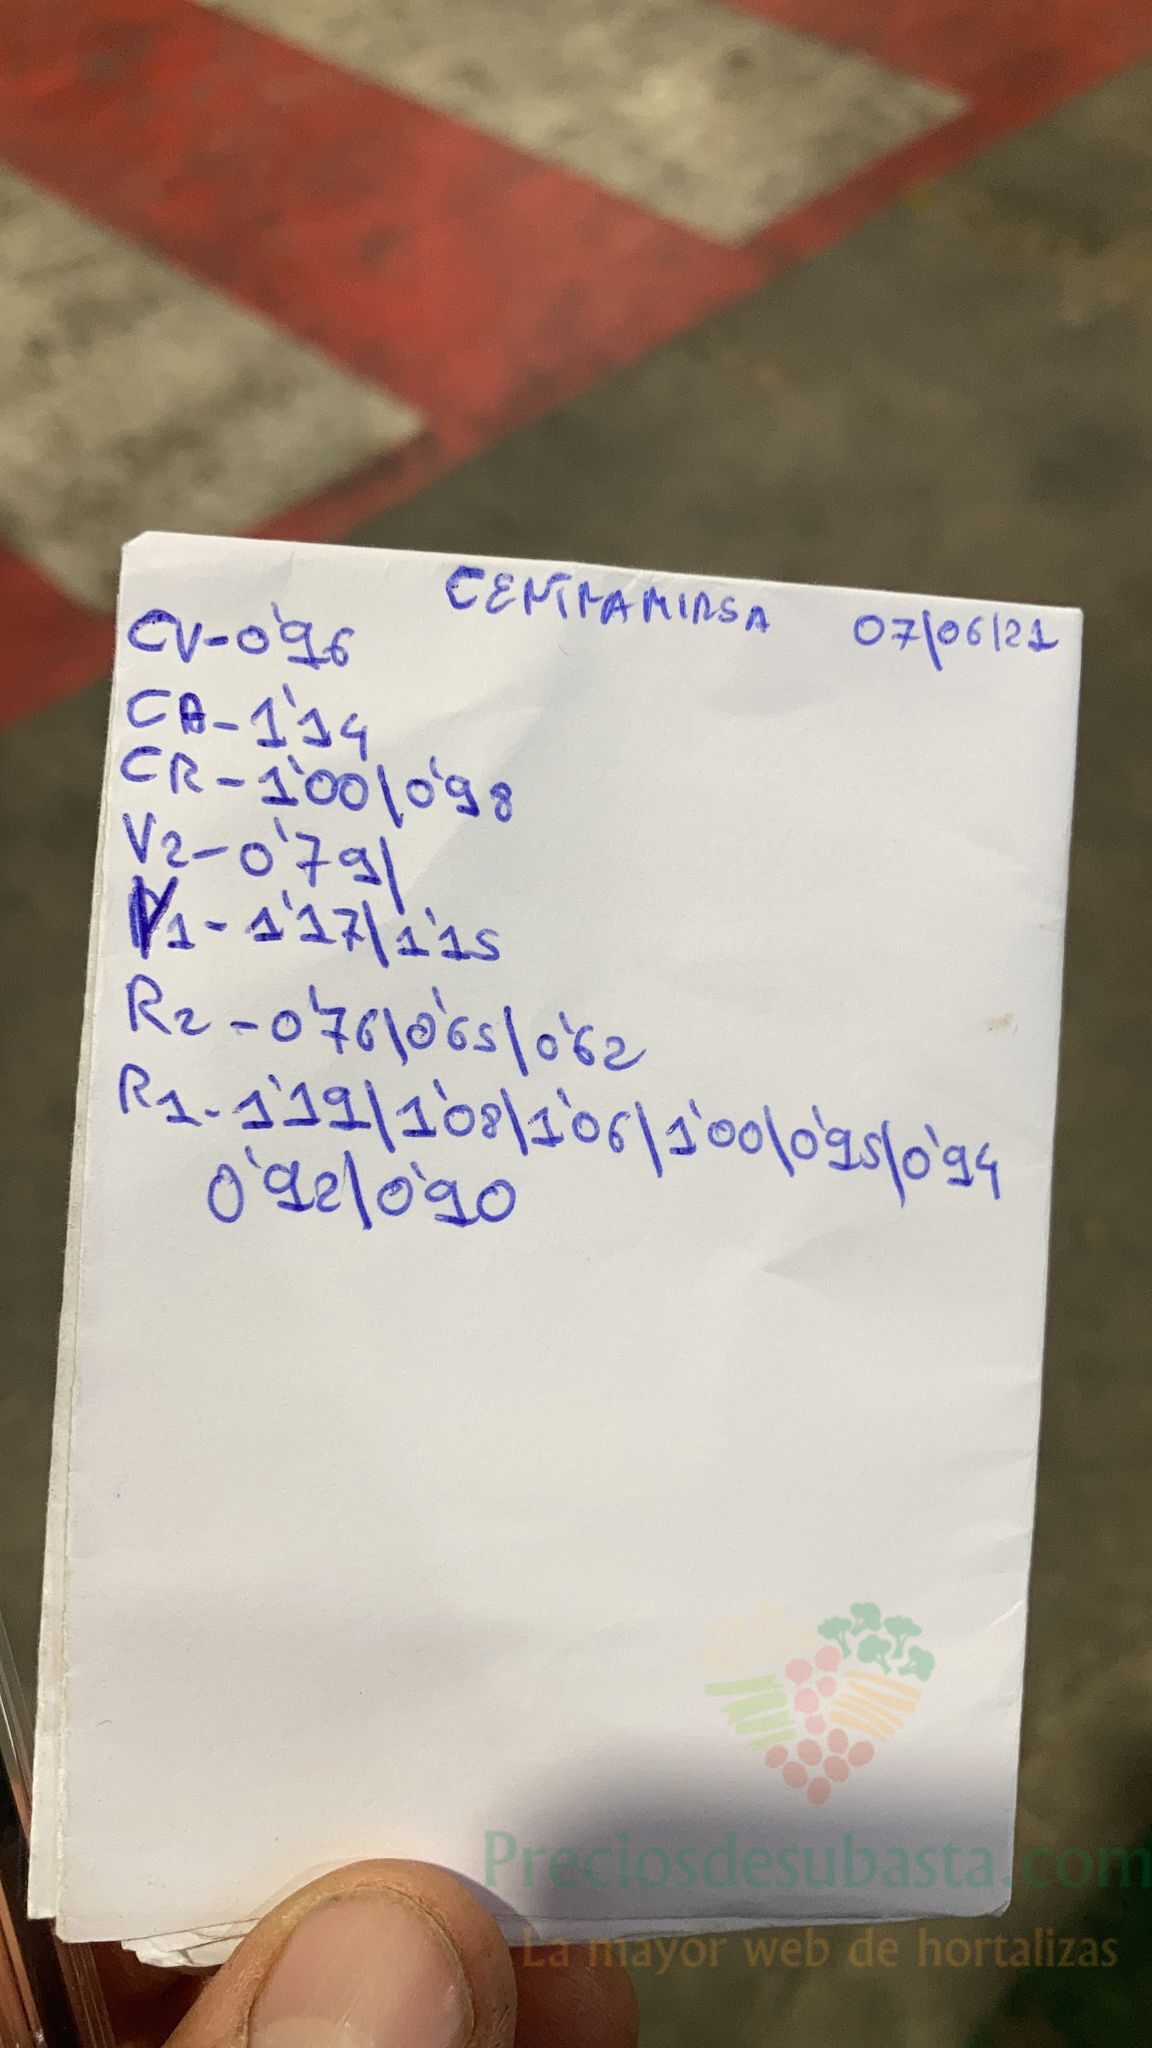 CENTRAMIRSA 07/06/21
CV-0'96
CA-1'14
CR-1'00/0'98
V2-0'79/
V1-1'17/1'15
R2-0'76/0'65/0'62
R1-1'19/1'08/1'06/1'00/0'95/0'94
0'92/0'90
Preciosdesubasta.com
La mayor web de hortalizas